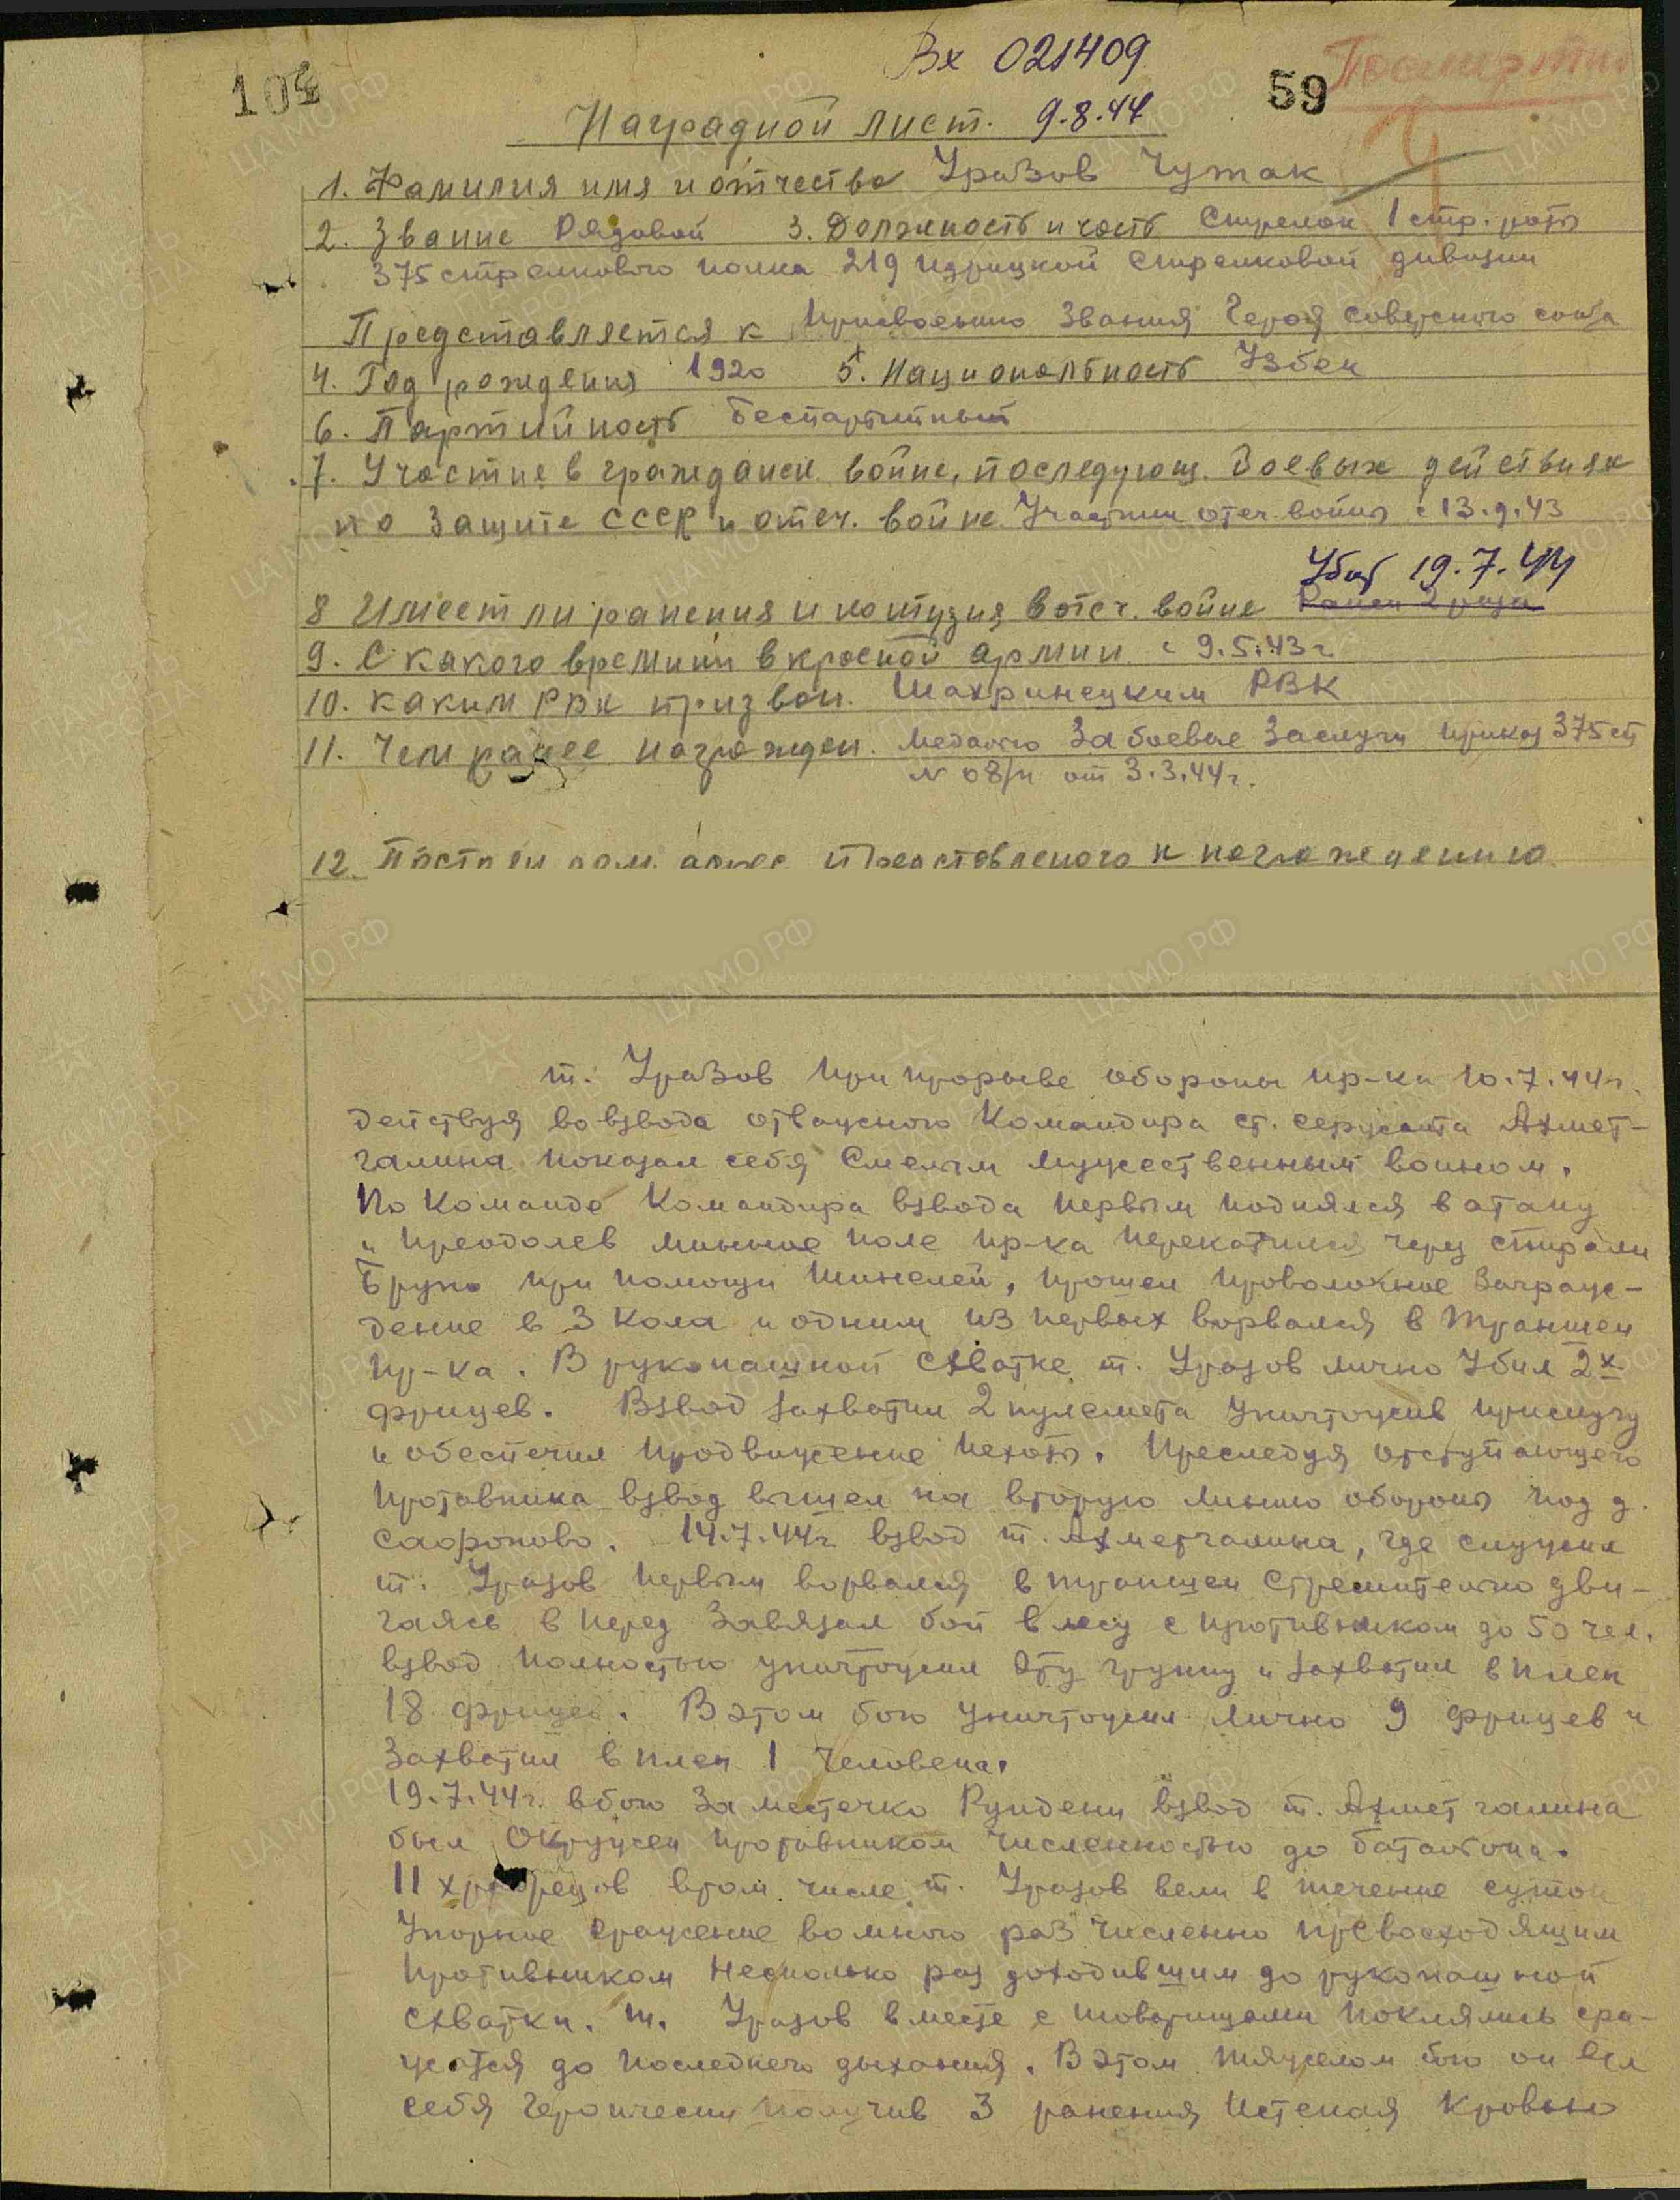 Вх 021409
Посмертно
104
59
Наградной лист. 9.8.44
1. Фамилия имя и отчество Уразов Чутак
2. Звание Рядовой 3. Должность и часть Стрелок 1 стр. роты
375 стрелкового полка 219 Идрицкой Стрелковой дивизии
Представляется к Присвоению Звания Героя Советского союза
4. Год рождения 1920 5. Национальность Узбек
6. Партийность Беспартийный
7. Участие в граждансн. войне, последующ. боевых действиях
по защите СССР и отеч. войне. Участник отеч. войны с 13.9.43
Убит 19.7.44
8 Имеет ли ранения и контузия в отеч. войне Ранен 2 раза
9. С какого времини в красной армии с 9.5.43г
10. каким РВК призван. Шахринеуким РВК
11. Чем ранее награжден. Медалью За боевые Заслуги приказ 375 сп
N 08/н от 3.3.44г.
12. Постоян дом. адрес представленого к награждению
т. Уразов При прорыве обороны пр-ка 10.7.44г.
действуя во взводе отважного Командира ст. сержанта Ахмет-
галина показал себя Смелым мужественным воином.
По Команде Командира взвода первым поднялся в атаку
и преодолев минное поле пр-ка перекатился через спирали
Бруно при помощи шинелей, прошел проволочное Заграж-
дение в 3 кола и одним из первых ворвался в траншеи
пр-ка. В рукопашной схватке т. Уразов лично Убил 2х
фрицев. Взвод захватил 2 пулемета уничтожив прислугу
и обеспечил продвижение пехоты. Преследуя отступающего
противника взвод вышел на вторую линию обороны под д.
Сафроново. 14.7.44г взвод т. Ахметгалина, где служил
т. Уразов первым ворвался в траншеи стремительно дви-
гаясь в перед Завязал бой в лесу с противником до 50 чел.
взвод полностью уничтожил эту группу и захватил в плен
18 фрицев. В этом бою уничтожил лично 9 фрицев и
Захватил в плен 1 человека.
19.7.44г. в бою За местечко Рундени взвод т. Ахметгалина
был Окружен противником численностью до батальона.
11 храбрецов втом числе т. Уразов вели в течение суток
Упорное сражение во много раз численно превосходящим
противником несколько раз доходившим до рукопашной
схватки. т. Уразов вместе с товарищами поклялись сра-
жатся до последнего дыхания. В этом тяжелом бою он вел
себя героически получив 3 ранения Истекая Кровью